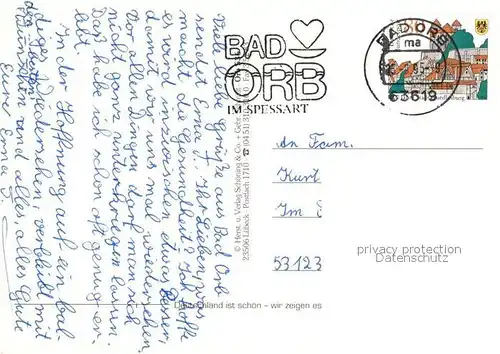 BAD
ORB
IM SPESSART
BAD ORB
ma
63619
Viele liebe Grüße aus Bad Orb
sendet Erna. Ihr Lieben, was
macht die Gesundheit? Ich hoffe
es wird inzwischen etwas besser,
damit wir uns mal wiedersehen.
Vor allen Dingen darf man sich
nicht ganz unterkriegen lassen.
Das habe ich schon oft genug er-
lebt.
In der Hoffnung auf ein bal-
diges Wiedersehen, verbleibt mit
Grüßen und alles, alles Gute
Eure Erna
© Herst. u. Verlag Schöning & Co. + Gebr.
23506 Lübeck · Postfach 1710 ☎ (04 51) 31
An Fam.
Kurt
Im
53123
privacy protection
Datenschutz
Deutschland ist schön – wir zeigen es